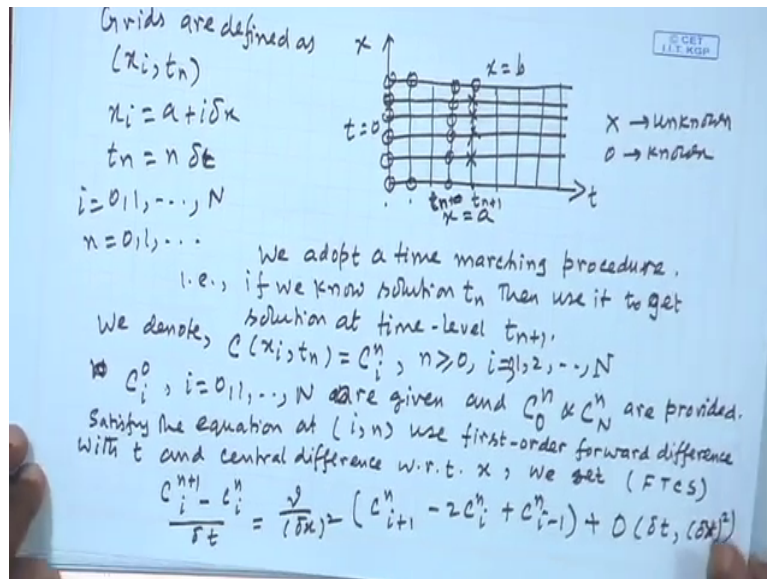 Grids are defined as
(xi, tn)
xi = a + iδx
tn = n δt
i = 0,1,---, N
n = 0,1, ---
x
x = b
© CET
I.I.T. KGP
t = 0
x → unknown
o → known
t
tn tn+1
x = a
We adopt a time marching procedure.
i.e., if we know solution tn then use it to get
solution at time-level tn+1.
We denote, C(xi, tn) = C_i^n, n ≥ 0, i = 1, 2, --, N
C_i^0, i = 0,1, --, N are given and C_0^n & C_N^n are provided.
Satisfy the equation at (i, n) use first-order forward difference
with t and central difference w.r.t. x, we get (FTCS)
(C_i^{n+1} - C_i^n)/δt = ν/(δx)^2 (C_{i+1}^n - 2C_i^n + C_{i-1}^n) + O(δt, (δx)^2)